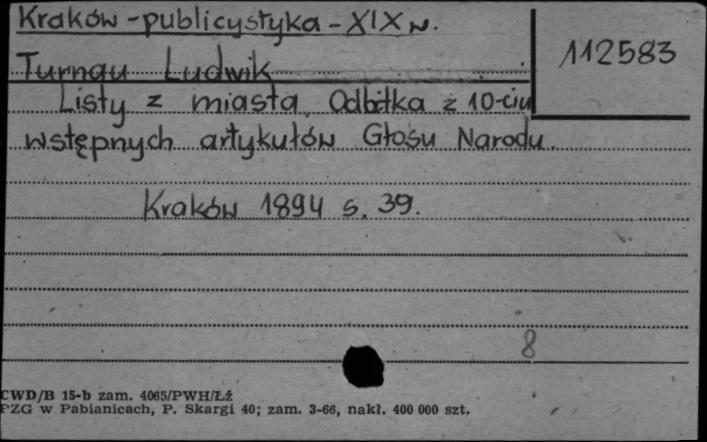 Kraków - publicystyka - XIX w.
112583
Turnau Ludwik
Listy z miasta. Odbitka z 10-ciu
wstępnych artykułów Głosu Narodu.
Kraków 1894 s. 39.
8
CWD/B 15-b zam. 4065/PWH/Łź
PZG w Pabianicach, P. Skargi 40; zam. 3-66, nakł. 400 000 szt.